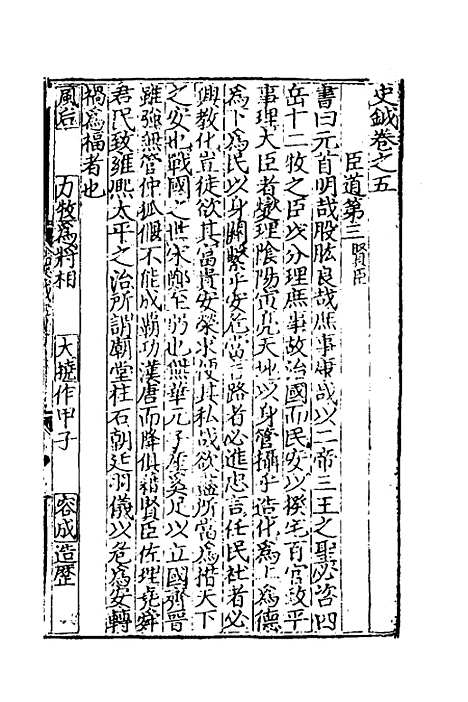 史鉞卷之五
臣道第三 賢臣
書曰元首明哉股肱良哉庶事康哉以二帝三王之聖必咨四
岳十二牧之臣以分理庶事故治國而民安以揆宅百官政平
事理大臣者燮理陰陽寅亮天地以身管攝乎造化為上為德
為下為民以身關繫乎安危當言路者必進忠言任民社者必
興教化豈徒欲其富貴安榮求便其私哉欲盡所當為措天下
之安也戰國之世宋鄭至弱也無華元子產奚足以立國齊晉
雖強無管仲狐偃不能成霸功漢唐而降俱藉賢臣佐理堯舜
君民致雍熙太平之治所謂廟堂柱石朝廷羽儀以危為安轉
禍為福者也
風后 力牧為將相 大撓作甲子 容成造歷